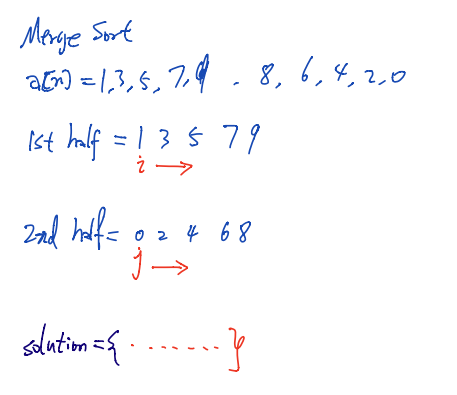 Merge Sort
a[n] = 1,3,5,7,9 . 8, 6, 4, 2, 0
1st half = 1 3 5 7 9
i →
2nd half = 0 2 4 6 8
j →
solution = { ........ }